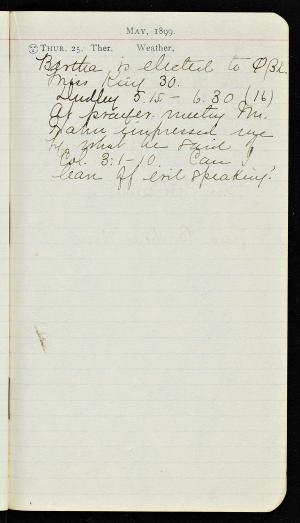 MAY, 1899.
THUR. 25. Ther. Weather,
Bertha is elected to Φ.B.K.
Miss King 30.
Dudley 5.15 - 6.30 (16)
At prayer meeting Mr.
Hahn impressed me
by what he said
Col. 3:1-10. Can I
lean off evil speaking?